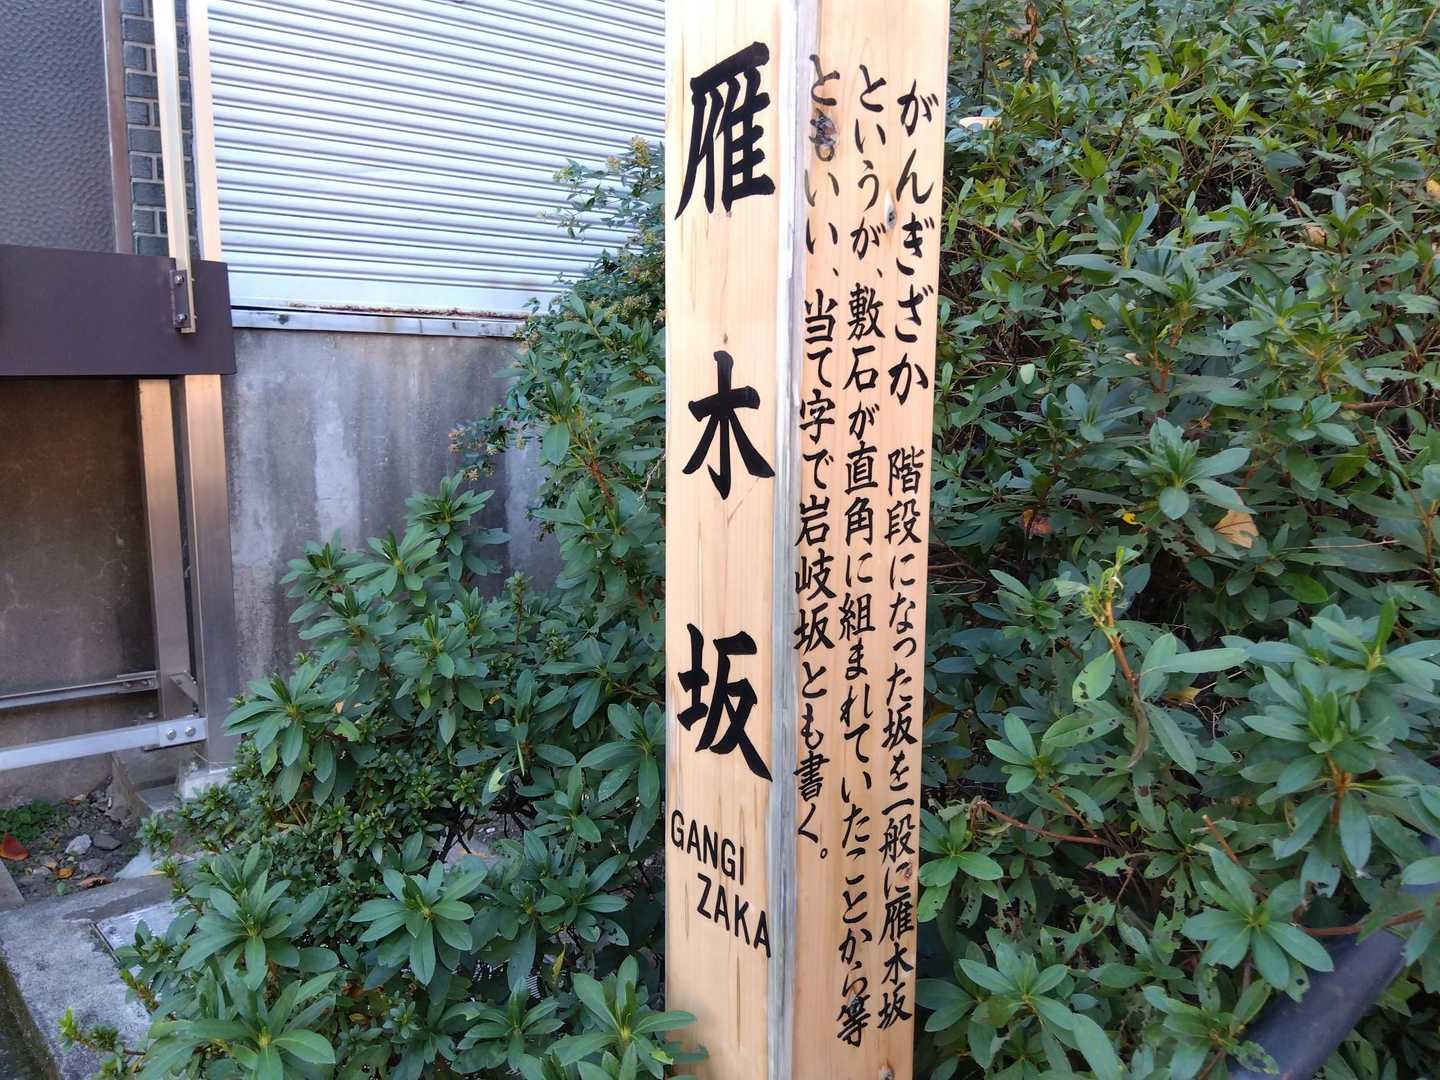 雁木坂
GANGI
ZAKA
がんぎざか 階段になった坂を一般に雁木坂
というが、敷石が直角に組まれていたことから等
ともいい、当て字で岩岐坂とも書く。